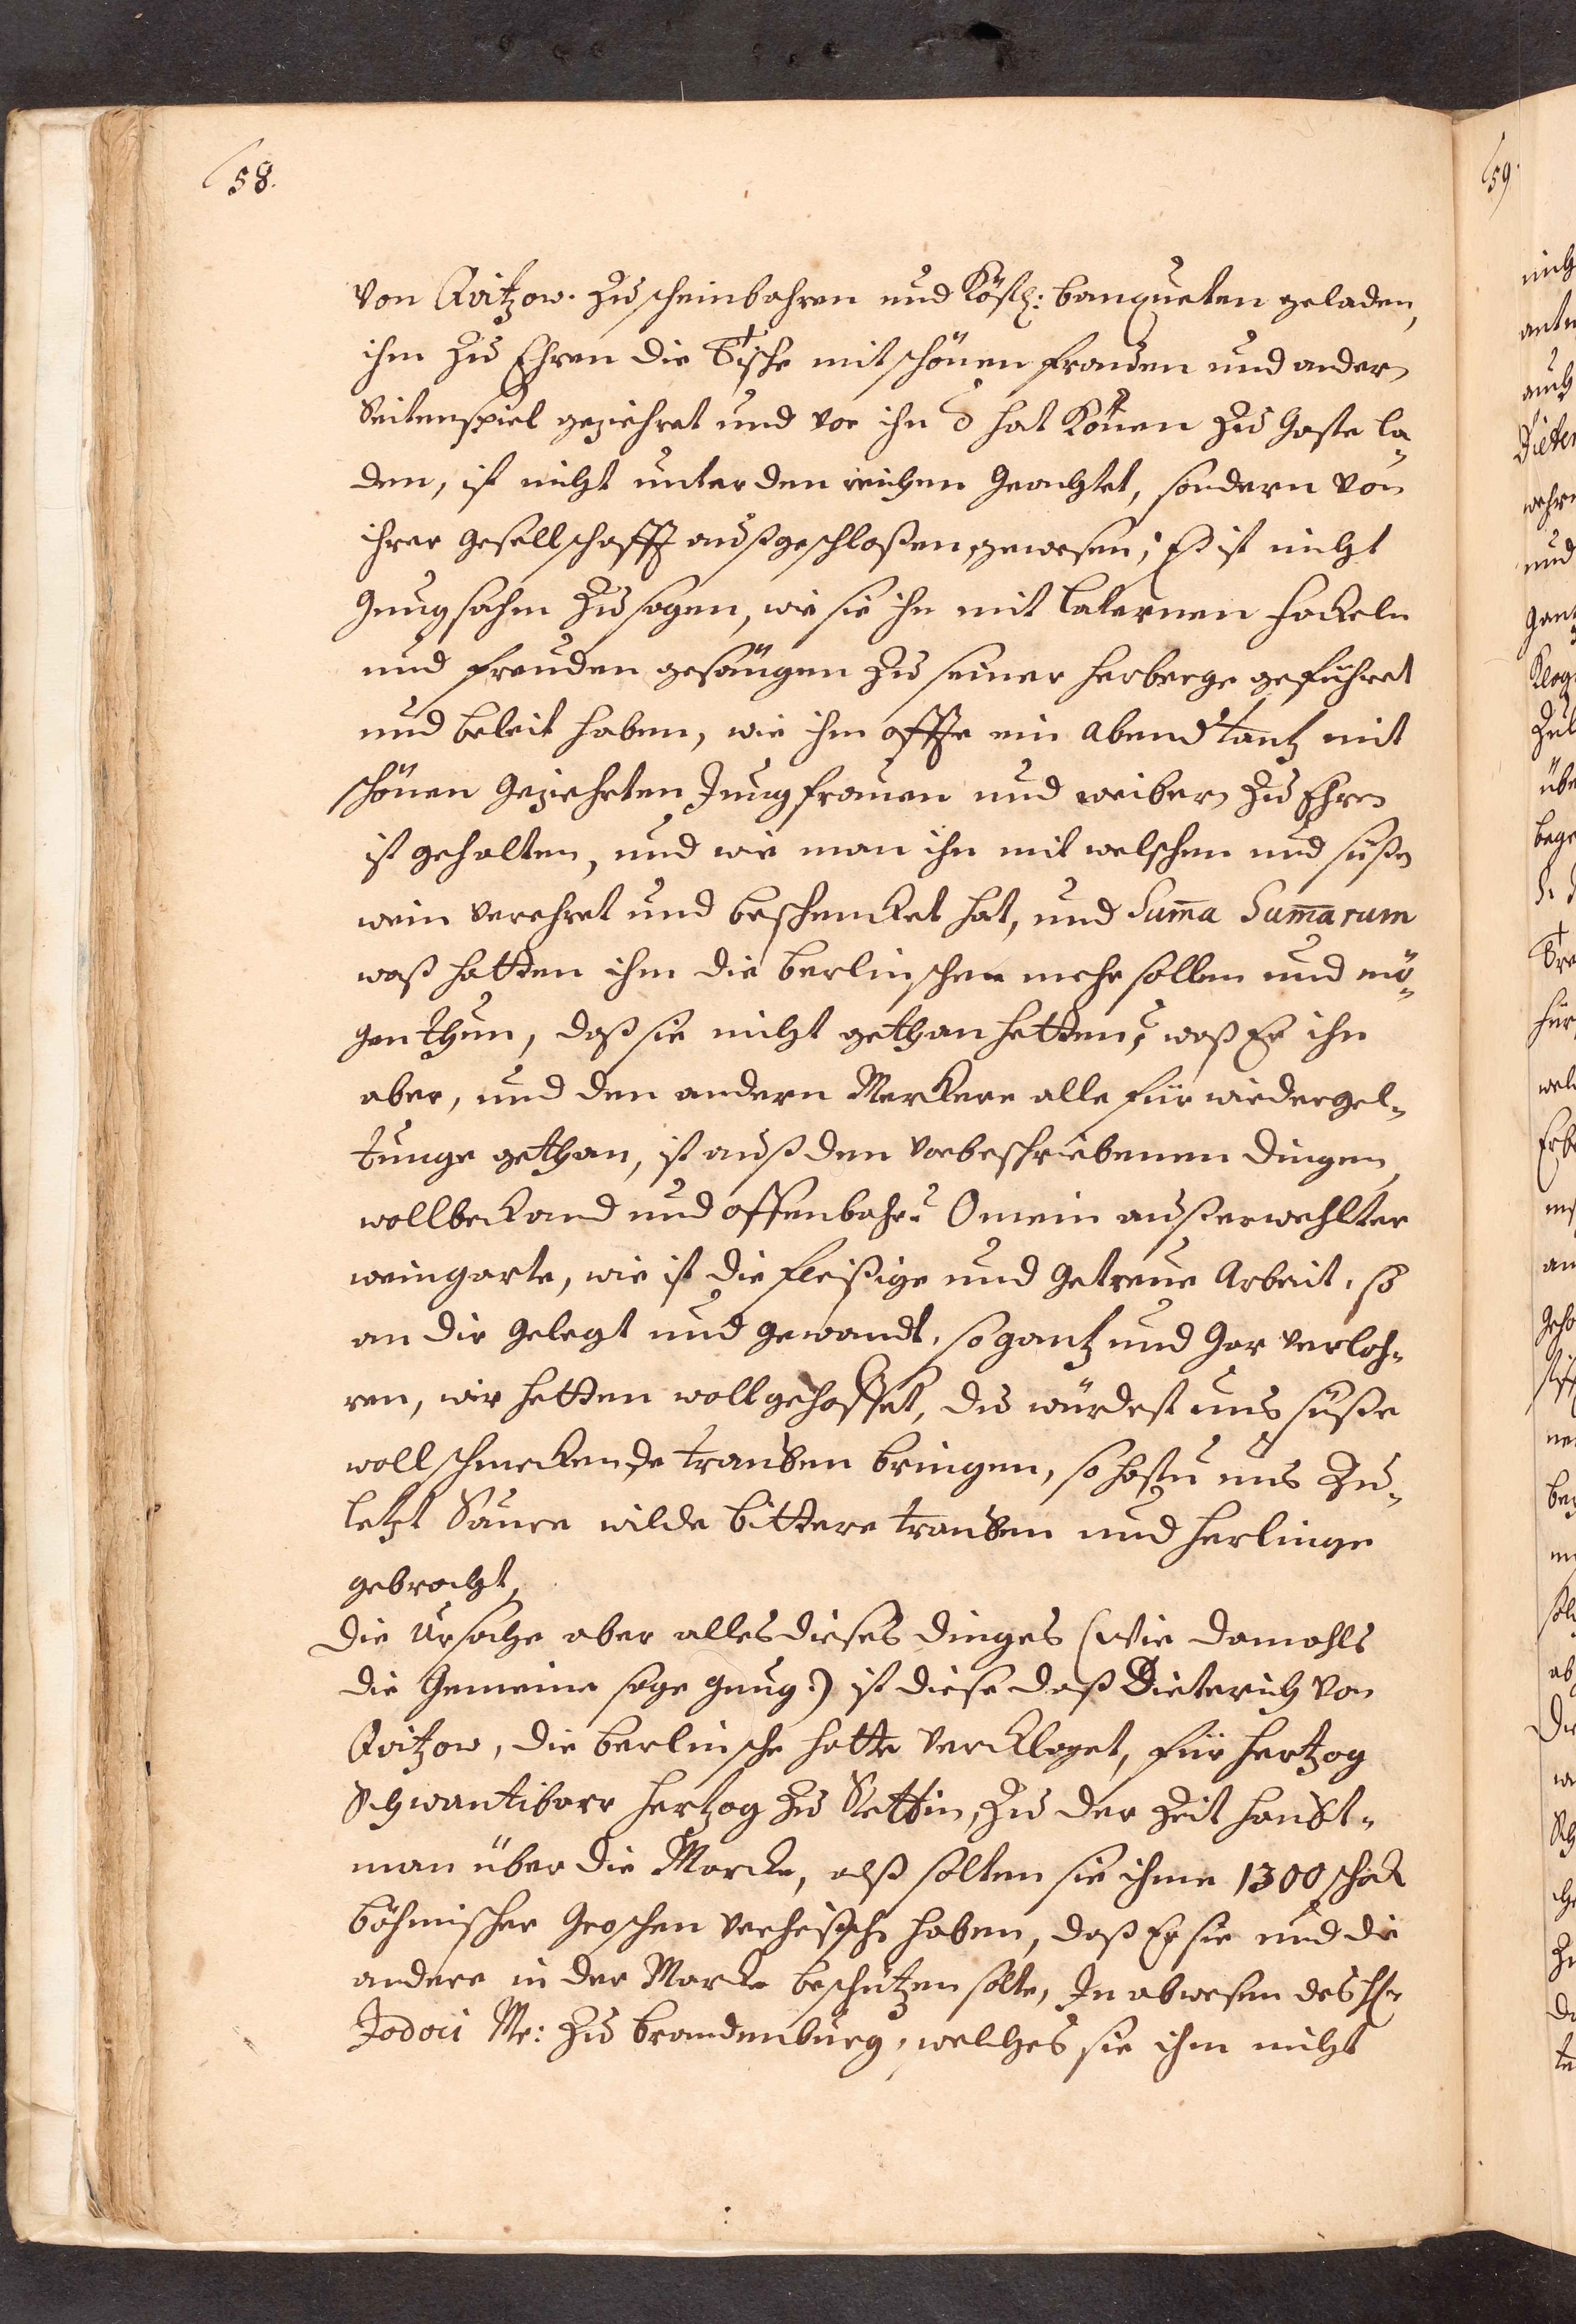 58.
von Qvitzow. zu scheinbahren und Köstl: banqueten geladen,
ihm zu Ehren die Tische mit schönen frauen und andern
Seitenspiel geziehret und wer ihn d hat Können zu Gaste la„
den, ist nicht unter den reichen Geachtet, sondern von
ihrer Gesellschafft außgeschloßen gewesen; Es ist nicht
Gnugsahm zu sagen, wie sie ihn mit Laternen fackeln
und freuden gesängen zu seiner herberge geführet
und beleit haben, wie ihm offte ein abend tantz mit
schönen Geziehrten Jungfrauen und weibern zu Ehren
ist gehalten, und wie man ihn mit welschen und süßen
wein verehret und beschencket hat, und Sum̄a Sum̄arum
waß hatten ihm die berlinschen mehr sollen und mö„
gen thun, daß sie nicht gethan hetten; waß Er ihn
aber, und den andern Merckern alle für wiedergel„
tunge gethan, ist auß den vorbeschriebenen dingen
wollbekand und offenbahr. O mein außerwehlter
weingarte, wie ist die fleißige und Getreue Arbeit, so
an dir Gelegt und Gewandt, so gantz und Gar verloh„
ren, wir hetten woll gehoffet, du würdest uns süße
woll schmeckende trauben bringen, so hastu uns Zu„
letzt Saure wilde bittere trauben und herlinge
gebracht,
Die Ursache aber alles dieses dinges (wie damahls
die Gemeine sage gung:) ist diese daß Dieterich von
Qvitzow, die berlinsche hatte Verklaget, für hertzog
Schwantibore hertzog zu Stettin, zu der Zeit haubt„
man über die Marcke, alß solten sie ihme 1300 schock
böhmischer Groschen verheischen haben, daß Er sie und die
andere in der Marcke beschützen solte, In abwesen des Hr
Jodoci Mr: zu brandenburg, welches sie ihm nicht
59.